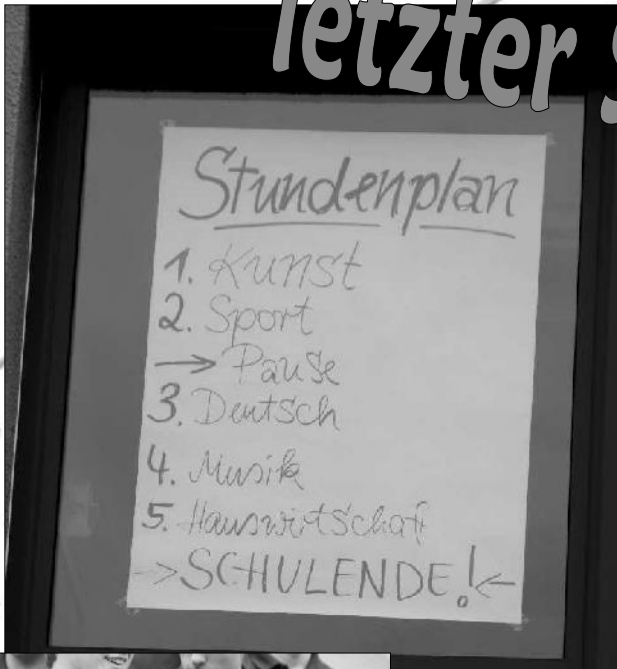 letzter
Stundenplan
1. Kunst
2. Sport
→ Pause
3. Deutsch
4. Musik
5. Hauswirtschaft
→ SCHULENDE! ←